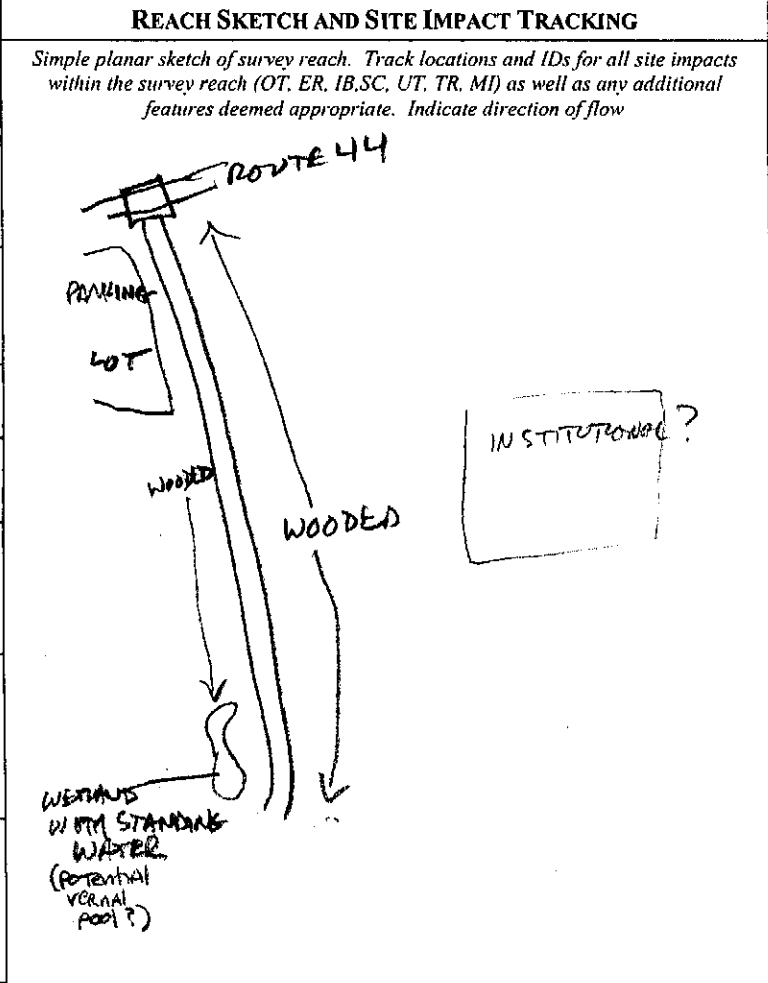 REACH SKETCH AND SITE IMPACT TRACKING
Simple planar sketch of survey reach. Track locations and IDs for all site impacts
within the survey reach (OT, ER, IB,SC, UT, TR, MI) as well as any additional
features deemed appropriate. Indicate direction of flow
ROUTE 44
PARKING
LOT
INSTITUTIONAL?
WOODED
WOODED
WETLAND
WITH STANDING
WATER
(POTENTIAL
VERNAL
POOL?)